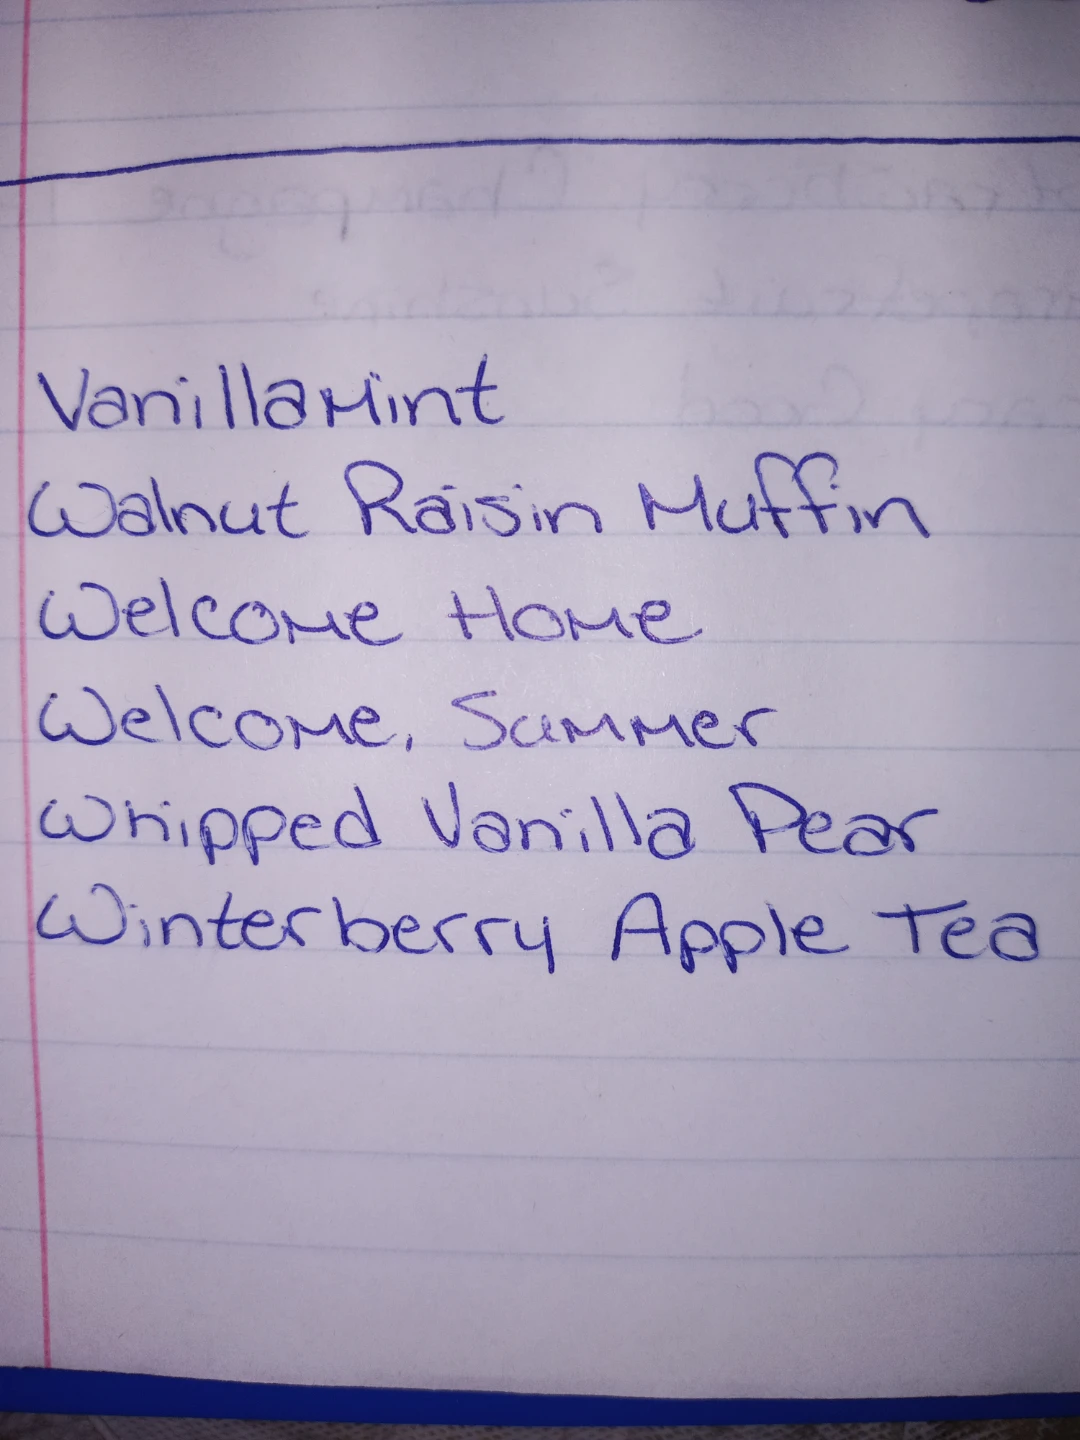 VanillaMint
Walnut Raisin Muffin
Welcome Home
Welcome, Summer
Whipped Vanilla Pear
Winterberry Apple Tea